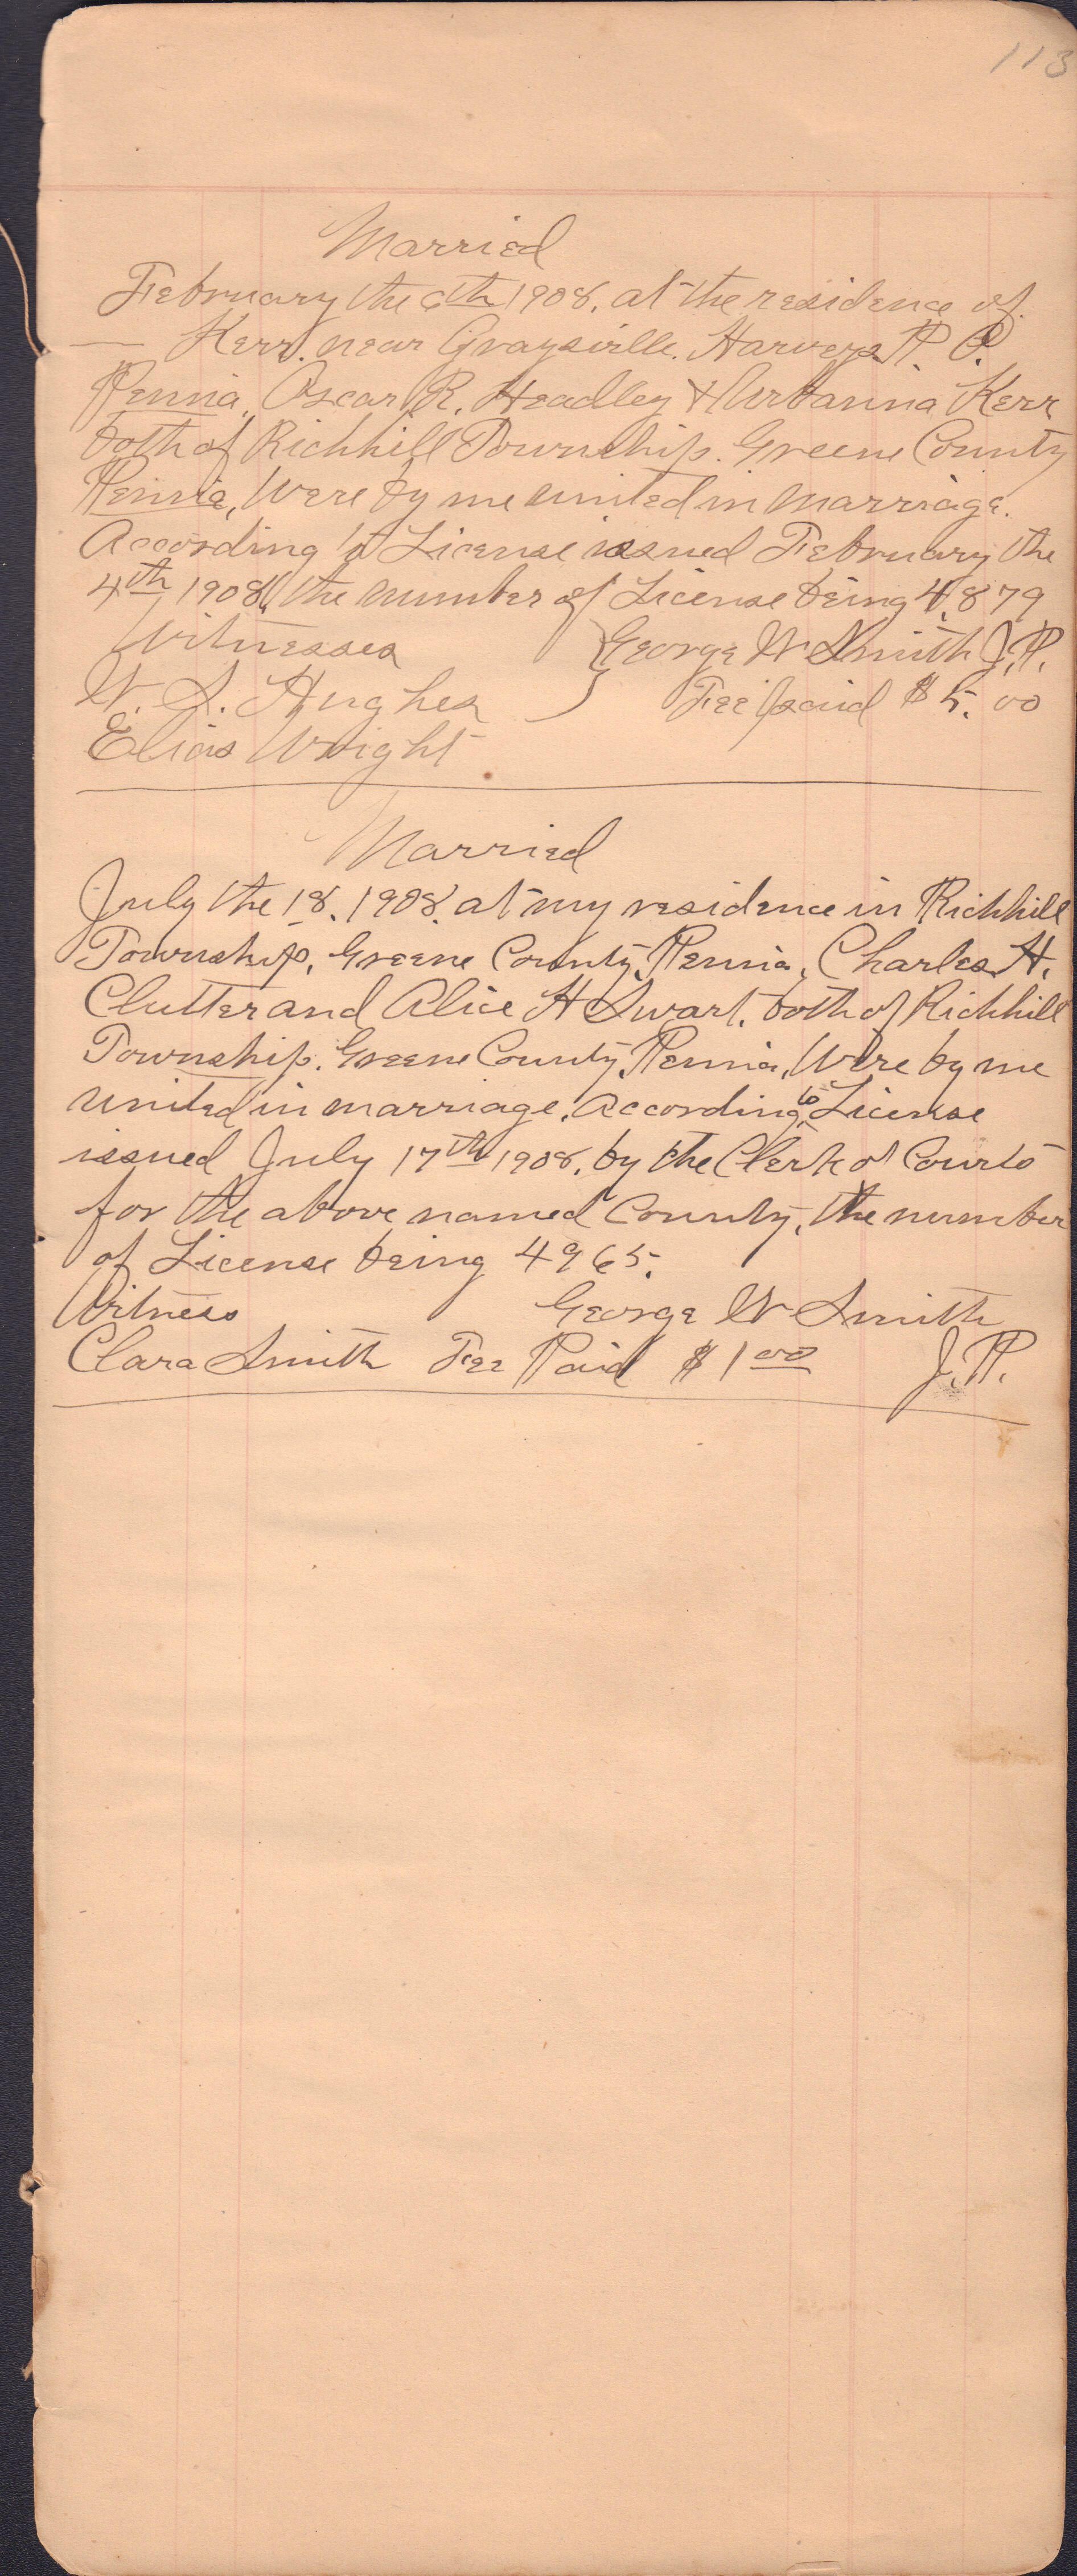 113
Married
February the 6th 1908. at the residence of
— Kerr. near Graysville. Harveys P. O.
Penna. Oscar R. Headley & Urbanna Kerr
both of Richhill Township. Greene County
Penna, Were by me united in marriage.
According to License issued February the
4th 1908, the number of License being 4879
Witnesses } George W Smith J.P.
W. S. Hughes Fee paid $5.00
Elias Wright
Married
July the 18. 1908. at my residence in Richhill
Township, Greene County, Penna, Charles H.
Clutter and Alice H Swart. both of Richhill
Township. Greene County, Penna, Were by me
united in marriage. According to License
issued July 17th 1908. by the Clerk of Courts
for the above named County, the number
of License being 4965.
Witness George W Smith
Clara Smith Fee Paid $1 00 J.P.